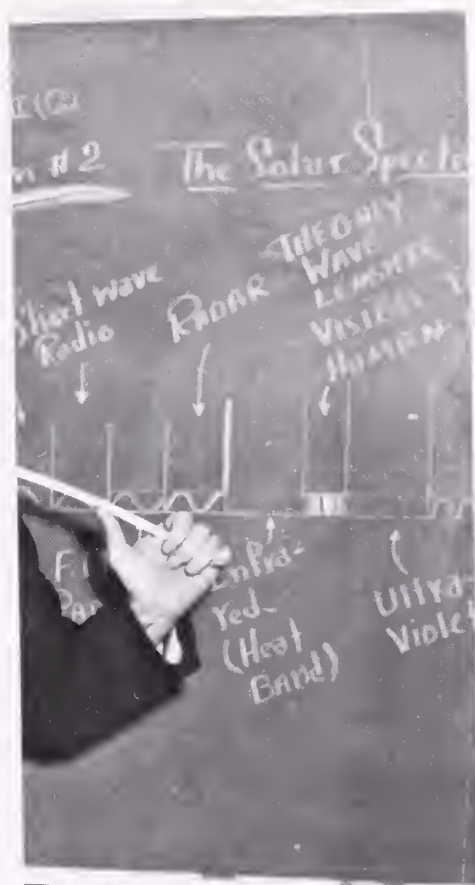 n #2
The Solar Spect
Short wave
Radio
RADAR
THE ONLY
WAVE
LENGTHS
VISIBLE T
HUMAN
Infra-
red-
(Heat
BAND)
Ultra
Violet